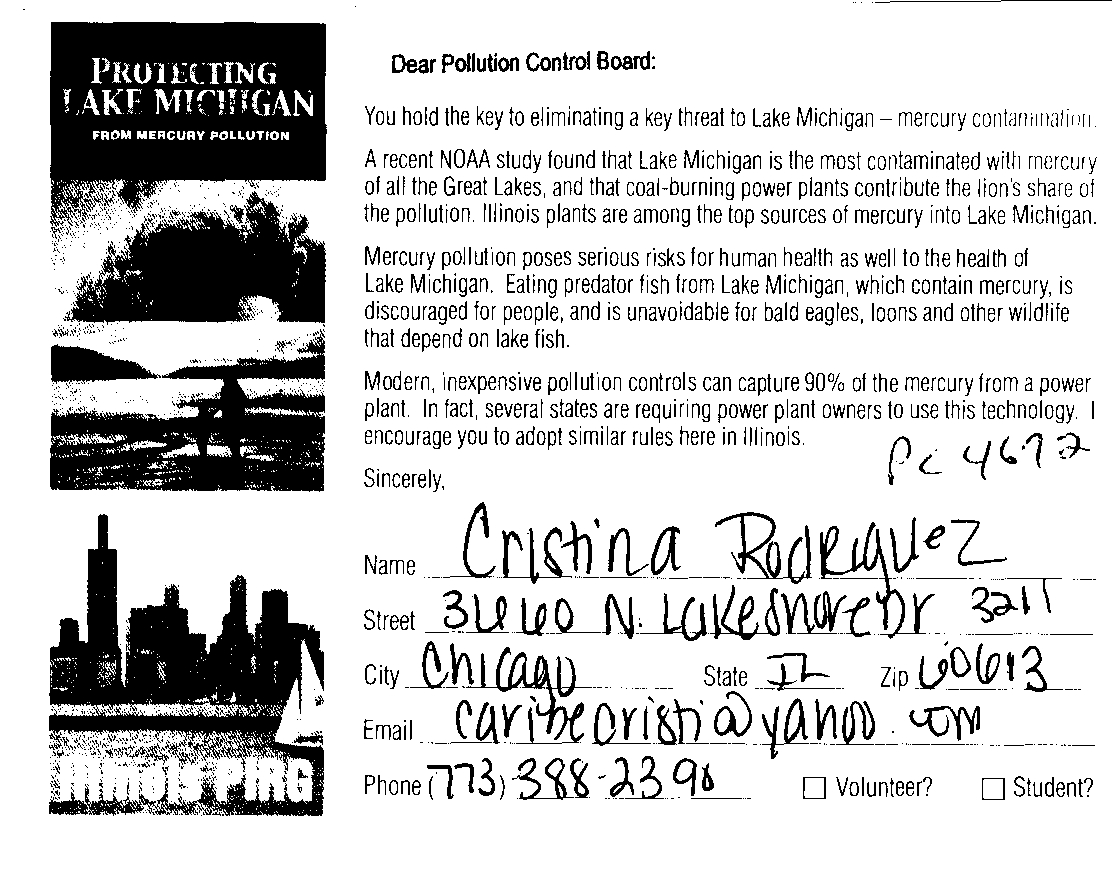 PROTECTING
LAKE MICHIGAN
FROM MERCURY POLLUTION
Illinois PIRG
Dear Pollution Control Board:
You hold the key to eliminating a key threat to Lake Michigan – mercury contamination.
A recent NOAA study found that Lake Michigan is the most contaminated with mercury
of all the Great Lakes, and that coal-burning power plants contribute the lion's share of
the pollution. Illinois plants are among the top sources of mercury into Lake Michigan.
Mercury pollution poses serious risks for human health as well to the health of
Lake Michigan. Eating predator fish from Lake Michigan, which contain mercury, is
discouraged for people, and is unavoidable for bald eagles, loons and other wildlife
that depend on lake fish.
Modern, inexpensive pollution controls can capture 90% of the mercury from a power
plant. In fact, several states are requiring power plant owners to use this technology. I
encourage you to adopt similar rules here in Illinois.
PC 4672
Sincerely,
Name Cristina Rodriguez
Street 3660 N. Lakeshore Dr 3211
City Chicago State IL Zip 60613
Email caribecristi@yahoo.com
Phone (773) 388-2390
Volunteer? Student?